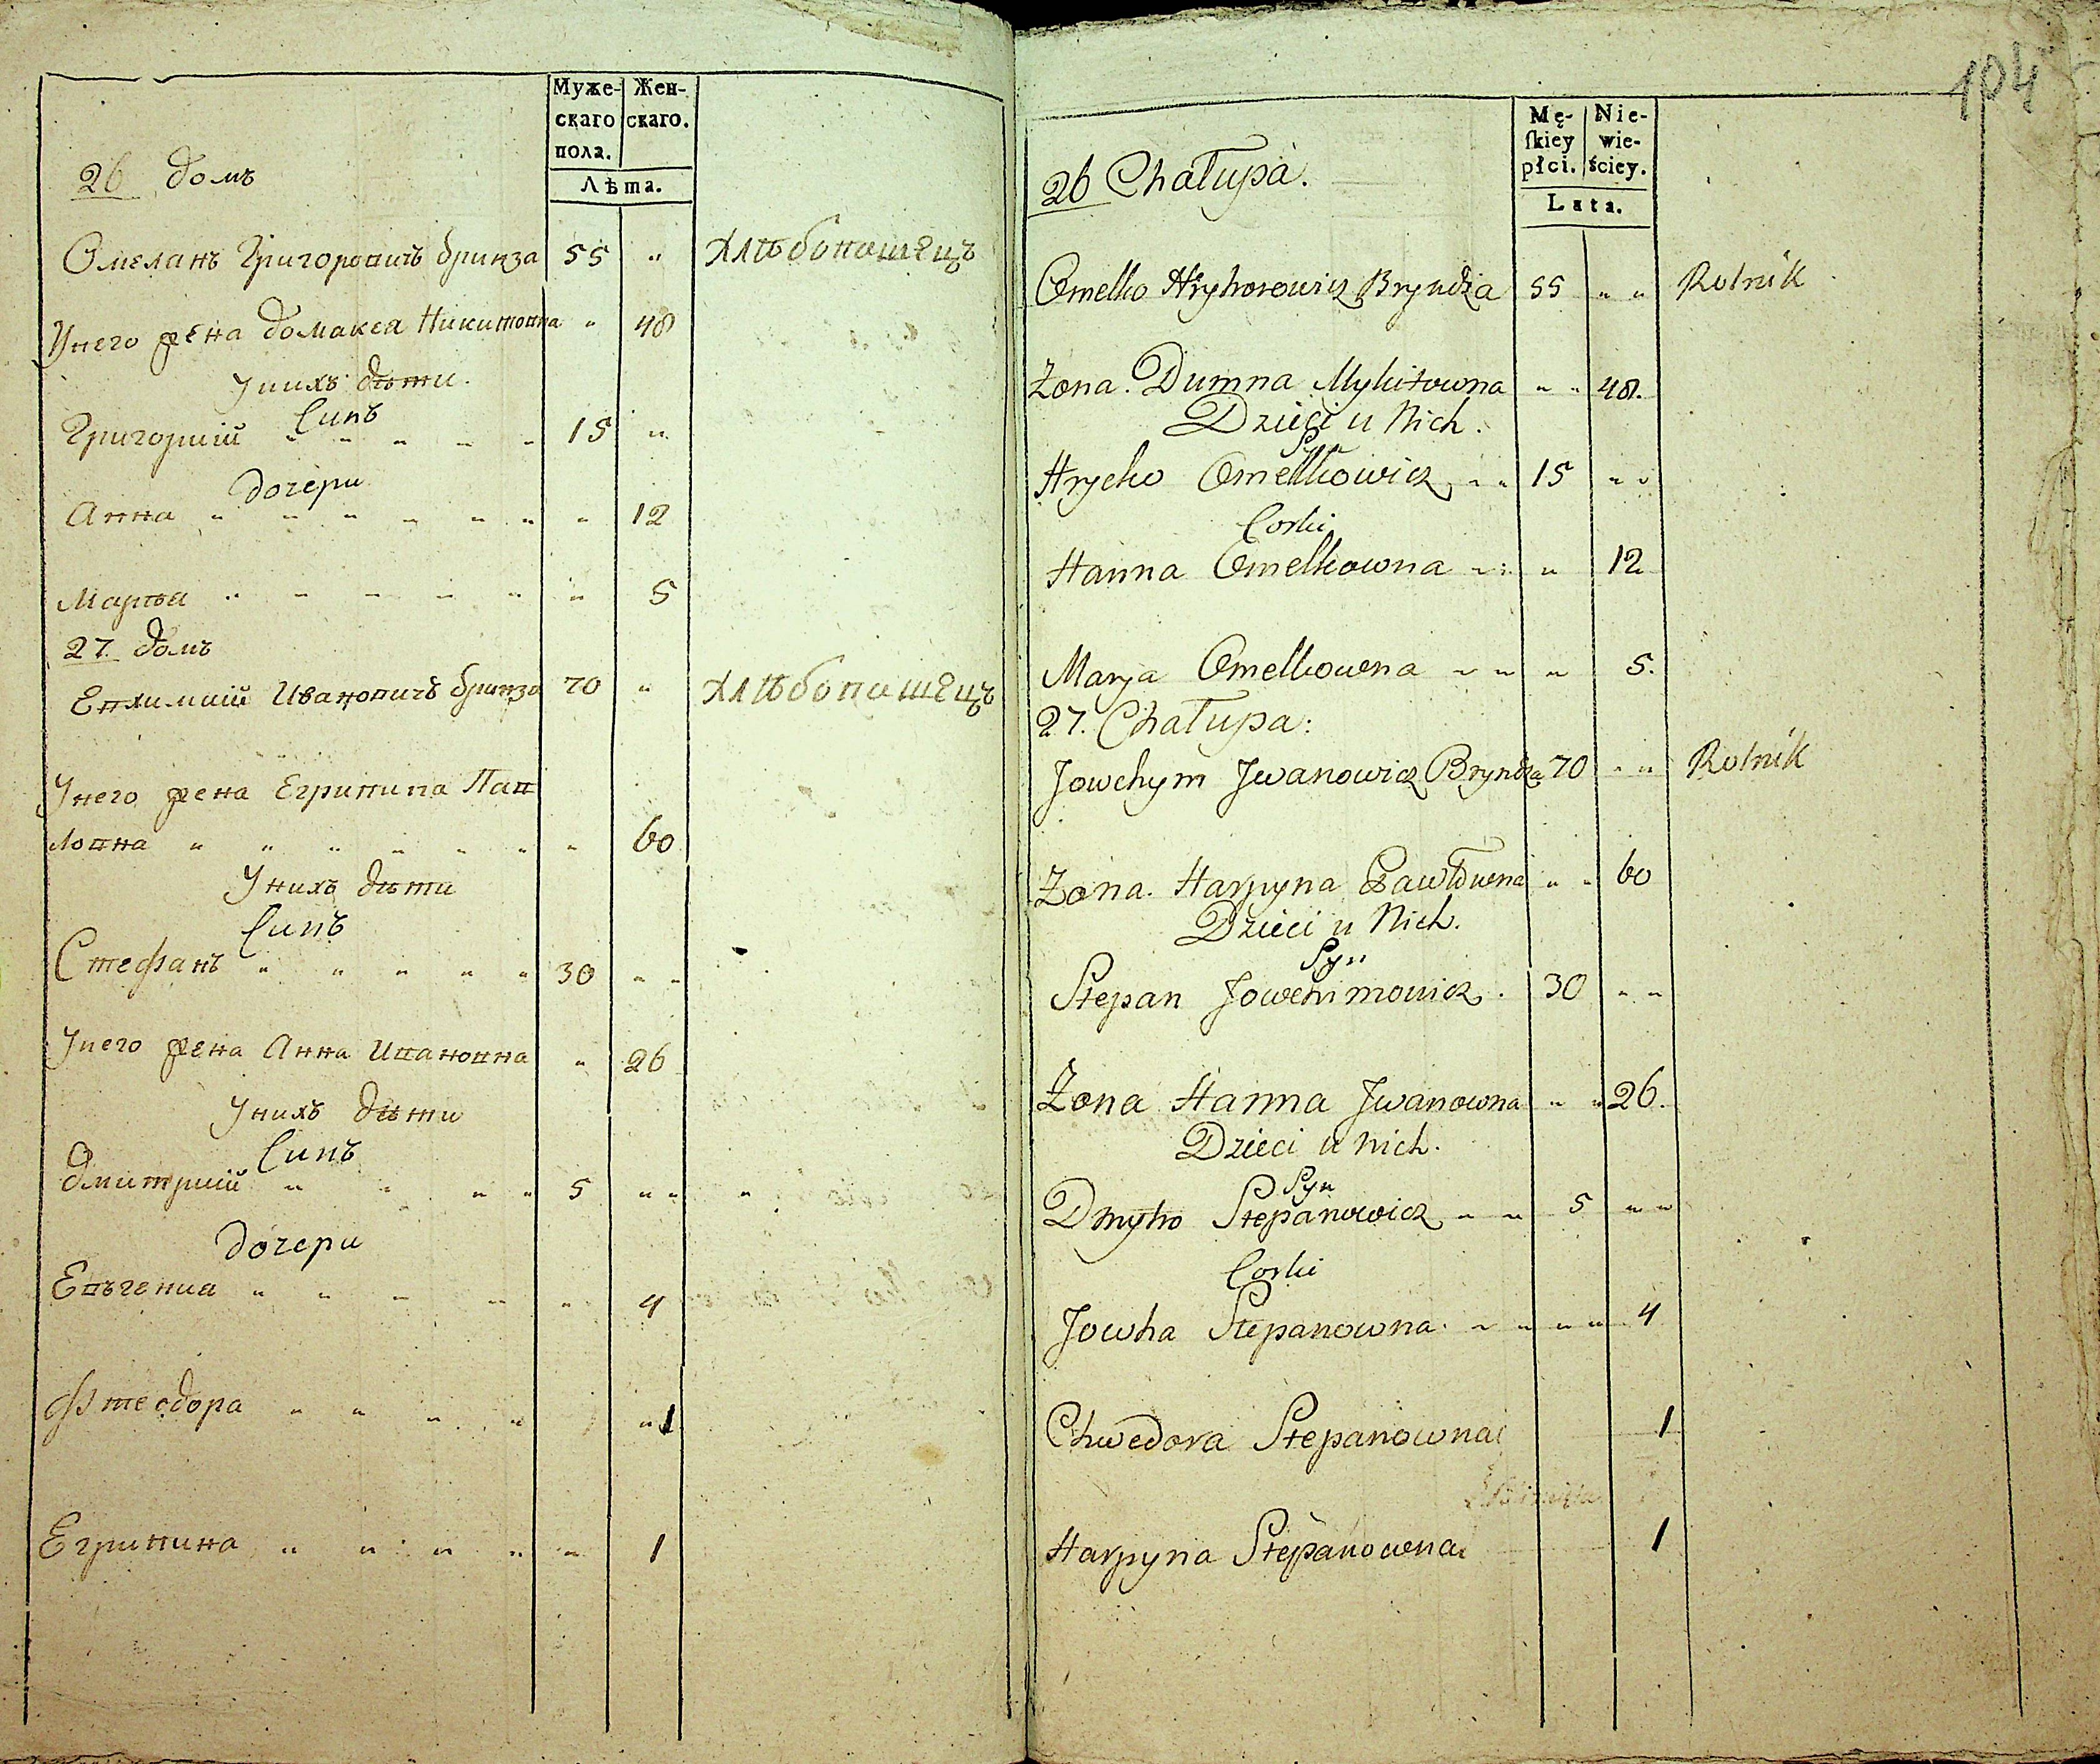 Муже-
скаго
пола.
Жен-
скаго.
Лѣта.
26 домъ
Омеланъ Григоровичъ бринза 55 " хлѣбопашецъ
Унего жена домакеа Никитовна " 48
Унихъ дѣти.
Синъ
Григорий " " " " " 15 "
дочери
Анна " " " " " " " 12
Маръа " " " " " " 5
27 домъ
Евхимий Ивановичъ бринза 70 " хлѣбопашецъ
Унего жена Егрипина Пав
ловна " " " " " " " 60
Унихъ дѣти
Синъ
Стефанъ " " " " " 30 " "
Унего жена Анна Ивановна " 26
Унихъ дѣти
Синъ
дмитрий " " " " 5 " " "
дочери
Евъгениа " " " " " 4
Фтеодора " " " " " 1
Егрипина " " " " " 1
104
Mę-
skiey
płci.
Nie-
wie-
ściey.
Lata.
26 Chałupa.
Omelko Hryhorowicz Bryndza 55 " " Rolnik
Zona. Dumna Mykitowna " " 48.
Dzieci u Nich.
Syn
Hrycko Omelkowicz " " 15 " "
Corki
Hanna Omelkowna " " " 12
Marya Omelkowna " " " 5.
27. Chałupa:
Jowchym Jwanowicz Bryndza 70 " " Rolnik
Zona. Harpyna Pawłowna " " 60
Dzieci u Nich.
Syn
Stepan Jowchimowicz. 30 " "
Zona Hanna Jwanowna " " 26.
Dzieci u nich.
Syn
Dmytro Stepanowicz " " 5 " "
Corki
Jowha Stepanowna. " " " " 4
Chwedora Stepanowna 1
Harpyna Stepanowna 1